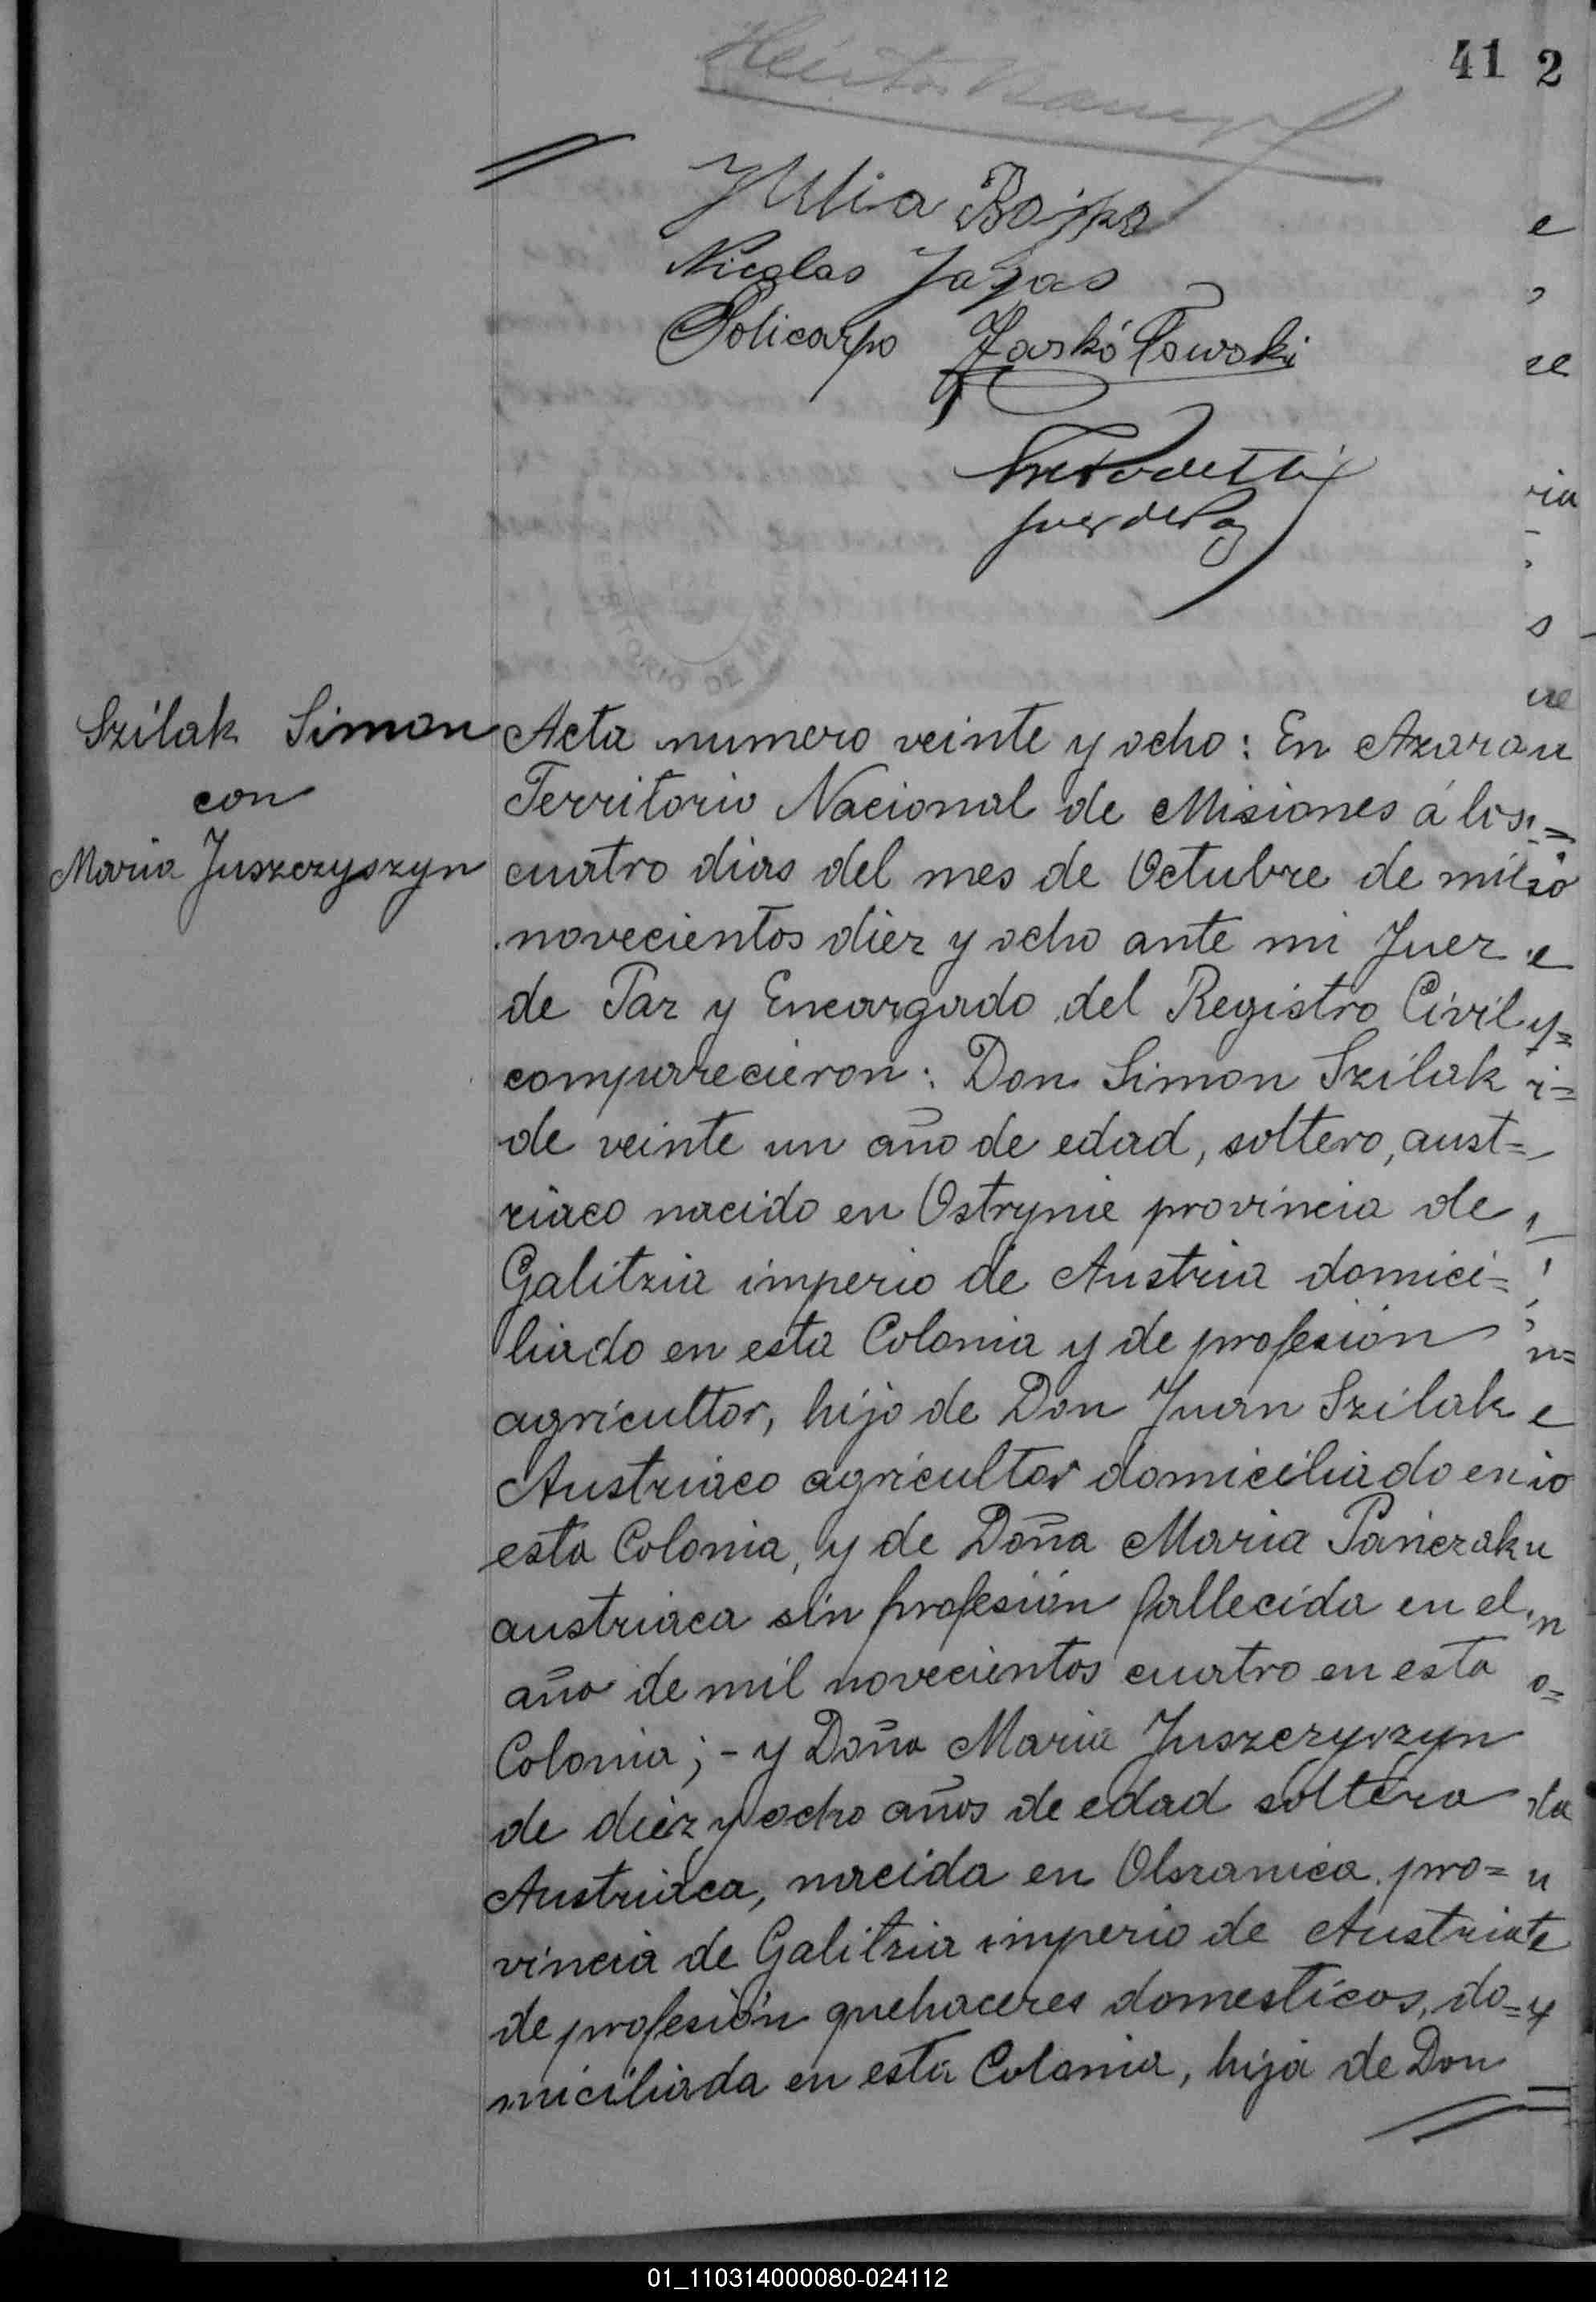 41 2
Julia Bojko
Nicolas Jagas
Policarpo
Juez de Paz
Szilak Simon
con
Maria Juszczyszyn
Acta numero veinte y ocho: En Azara
Territorio Nacional de Misiones á los
cuatro dias del mes de Octubre de mil
novecientos diez y ocho ante mi Juez
de Paz y Encargado del Registro Civil
comparecieron: Don Simon Szilak
de veinte un año de edad, soltero, aust=
riaco nacido en Ostrynie provincia de
Galitzia imperio de Austria domici=
liado en esta Colonia y de profesión
agricultor, hijo de Don Juan Szilak
Austriaco agricultor domiciliado en
esta Colonia, y de Doña Maria Pańczak
austriaca sin profesión fallecida en el
año de mil novecientos cuatro en esta
Colonia; - y Doña Maria Juszczyszyn
de diez y ocho años de edad soltera
Austriaca, nacida en Olszanica pro=
vincia de Galitzia imperio de Austria
de profesión quehaceres domesticos, do=
miciliada en esta Colonia, hija de Don
01_110314000080-024112